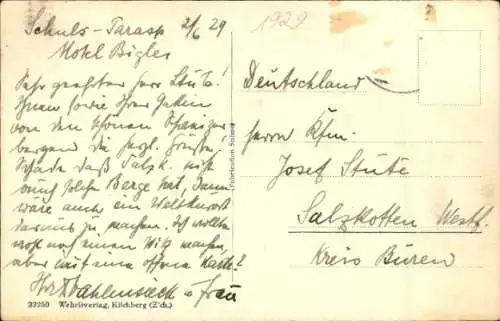 Schuls-Tarasp 2/6 29
Hotel Bigler
Sehr geehrter Herr Stute!
Ihnen sowie Ihrer Gattin
von den schönen Schweizer
bergen die herzl. Grüße!
Schade daß Salzk. nicht
auch solche Berge hat, dann
wäre auch ein Weltkurort
daraus zu machen. Ich wollte
wohl noch einen Witz machen,
aber auf eine offene Karte?
u Frau
32250 Wehrliverlag, Kilchberg (Z'ch.)
1929
Deutschland
Herrn Kfm.
Josef Stute
Salzkotten Westf.
Kreis Büren